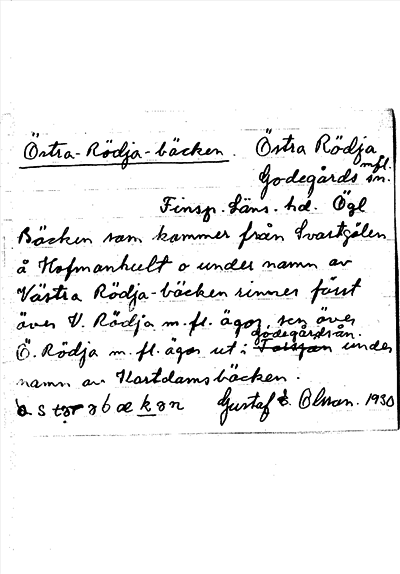 Östra-Rödja-bäcken. Östra Rödja
mfl.
Godegårds sn.
Finsp. läns. hd. Ögl
Bäcken som kommer från Svartgölen
å Hofmanhult o under namn av
Västra Rödja-bäcken rinner först
över V. Rödja m.fl. ägor sen över
godegårdsån.
Ö. Rödja m.fl. ägor ut i under
namn av Kartdamsbäcken.
Gustaf Olsson. 1930